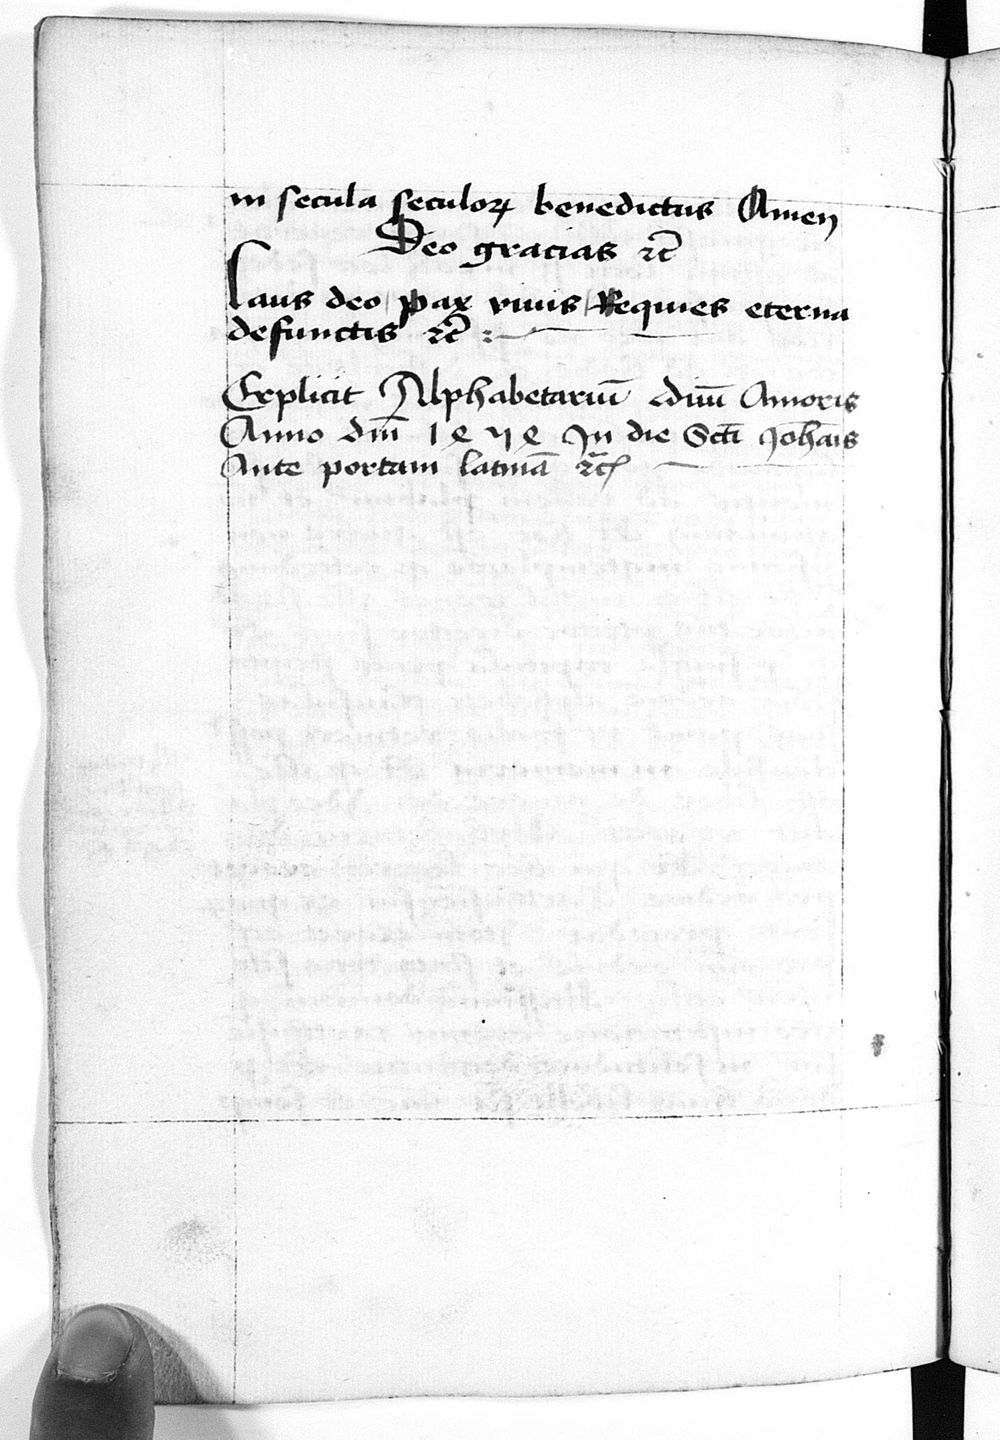 in secula seculoꝝ benedictus Amen
Deo gracias ⁊c̄
Laus deo pax viuis Requies eterna
defunctis ⁊c̄
Explicit Alphabetariū diuī Amoris
Anno dn̄i In die Sc̄ti Joha̅is
Ante portam latinā ⁊c̄